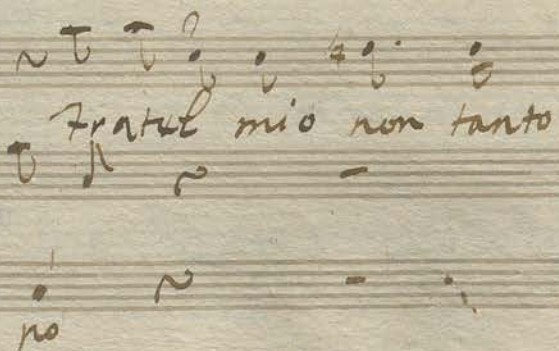 Fratel mio non tanto
po